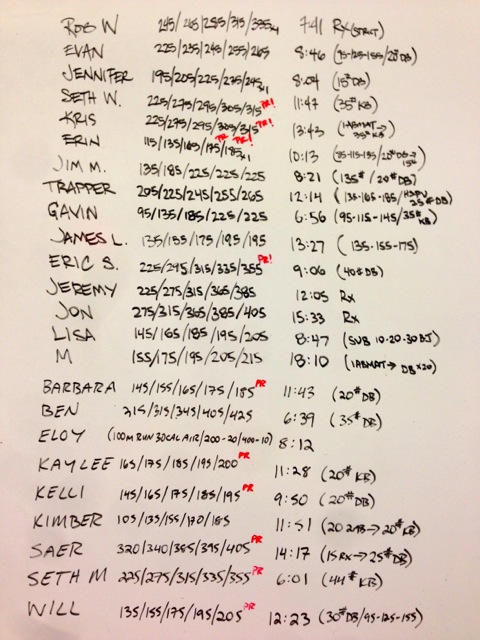 ROB W 245/265/285/315/335x4 7:41 RX (STRICT)
EVAN 225/235/245/255/265 8:46 (95-125-155/20#DB)
JENNIFER 195/205/225/235/245x1 8:04 (15#DB)
SETH W. 225/275/295/305/315 PR! 11:47 (35#KB)
KRIS 225/275/295/305/315 PR! 13:43 (1ABMAT→35#KB)
ERIN 115/135/165/175/185x1 PR PR! 10:13 (95-115-135/20#DB→15#)
JIM M. 135/185/225/225/225 8:21 (135#/20#DB)
TRAPPER 205/225/245/255/265 12:14 (135-165-185/HSPU 25#DB)
GAVIN 95/135/185/225/225 6:56 (95-115-145/35#KB)
JAMES L. 135/155/175/195/195 13:27 (135-155-175)
ERIC S. 225/295/315/335/355 PR! 9:06 (40#DB)
JEREMY 225/275/315/365/385 12:05 RX
JON 275/315/365/385/405 15:33 RX
LISA 145/165/185/195/205 8:47 (SUB 10-20-30 BJ)
M 155/175/195/205/215 18:10 (1ABMAT→DB×20)
BARBARA 145/155/165/175/185 PR 11:43 (20#DB)
BEN 215/315/345/405/425 6:39 (35#DB)
ELOY (100M RUN 30CAL AIR/200-20/400-10) 8:12
KAYLEE 165/175/185/195/200 PR 11:28 (20#KB)
KELLI 145/165/175/185/195 PR 9:50 (20#DB)
KIMBER 105/135/155/170/185 11:51 (20 2AB→20#KB)
SAER 320/340/385/395/405 PR 14:17 (15RX→25#DB)
SETH M 225/275/315/335/355 PR 6:01 (44#KB)
WILL 135/155/175/195/205 PR 12:23 (30#DB/95-125-155)